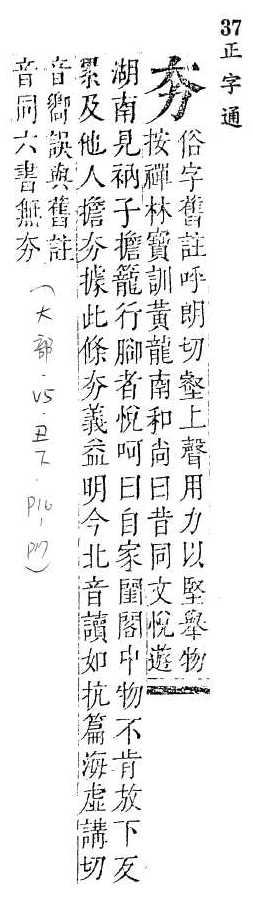 37正字通
夯
俗字舊註呼朗切壑上聲用力以堅舉物
按禪林寶訓黃龍南和尚曰昔同文悅遊
湖南見衲子擔籠行腳者悅呵曰自家閨閣中物不肯放下反
累及他人擔夯據此條夯義益明今北音讀如抗篇海虛講切
音嚮誤與舊註
音同六書無夯
(大部.V5.丑下.P16,P17)